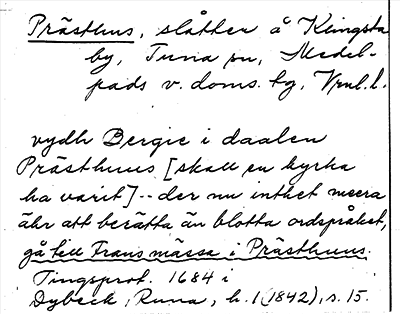 Prästhus, slåtter å Klingsta
by, Tuna sn, Medel-
pads v. doms. tg, Vnl. l.
vydh Bergie i daalen
Prästhuus [skall en kyrka
ha varit] -- der nu inthet meera
ähr att berätta än blotta ordspråket,
gå till Frans mässa i Prästhuus.
Tingsprot. 1684 i
Dybeck, Runa, h. 1 (1842), s. 15.